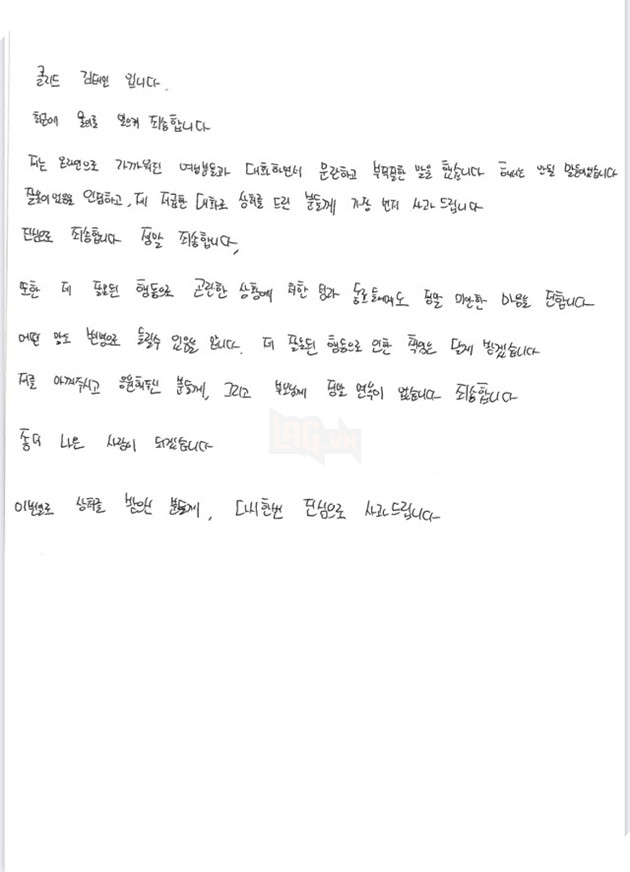 클리드 김태민 입니다.
최근에 물의를 일으켜 죄송합니다
저는 온라인으로 가까워진 여성분들과 대화하면서 문란하고 부적절한 말을 했습니다 해서는 안될 말들이었습니다
잘못이 있음을 인정하고, 제 저급한 대화로 상처를 드린 분들께 가장 먼저 사과드립니다
진심으로 죄송합니다 정말 죄송합니다,
또한 제 잘못된 행동으로 곤란한 상황에 처한 팀과 동료들에게도 정말 미안한 마음을 전합니다
어떤 말도 변명으로 들릴수 있음을 압니다. 제 잘못된 행동으로 인한 책임은 달게 받겠습니다
저를 아껴주시고 응원해주신 분들께, 그리고 부모님께 정말 면목이 없습니다 죄송합니다
좀더 나은 사람이 되겠습니다
이번일로 상처를 받으신 분들께, 다시한번 진심으로 사과드립니다
LAG.VN